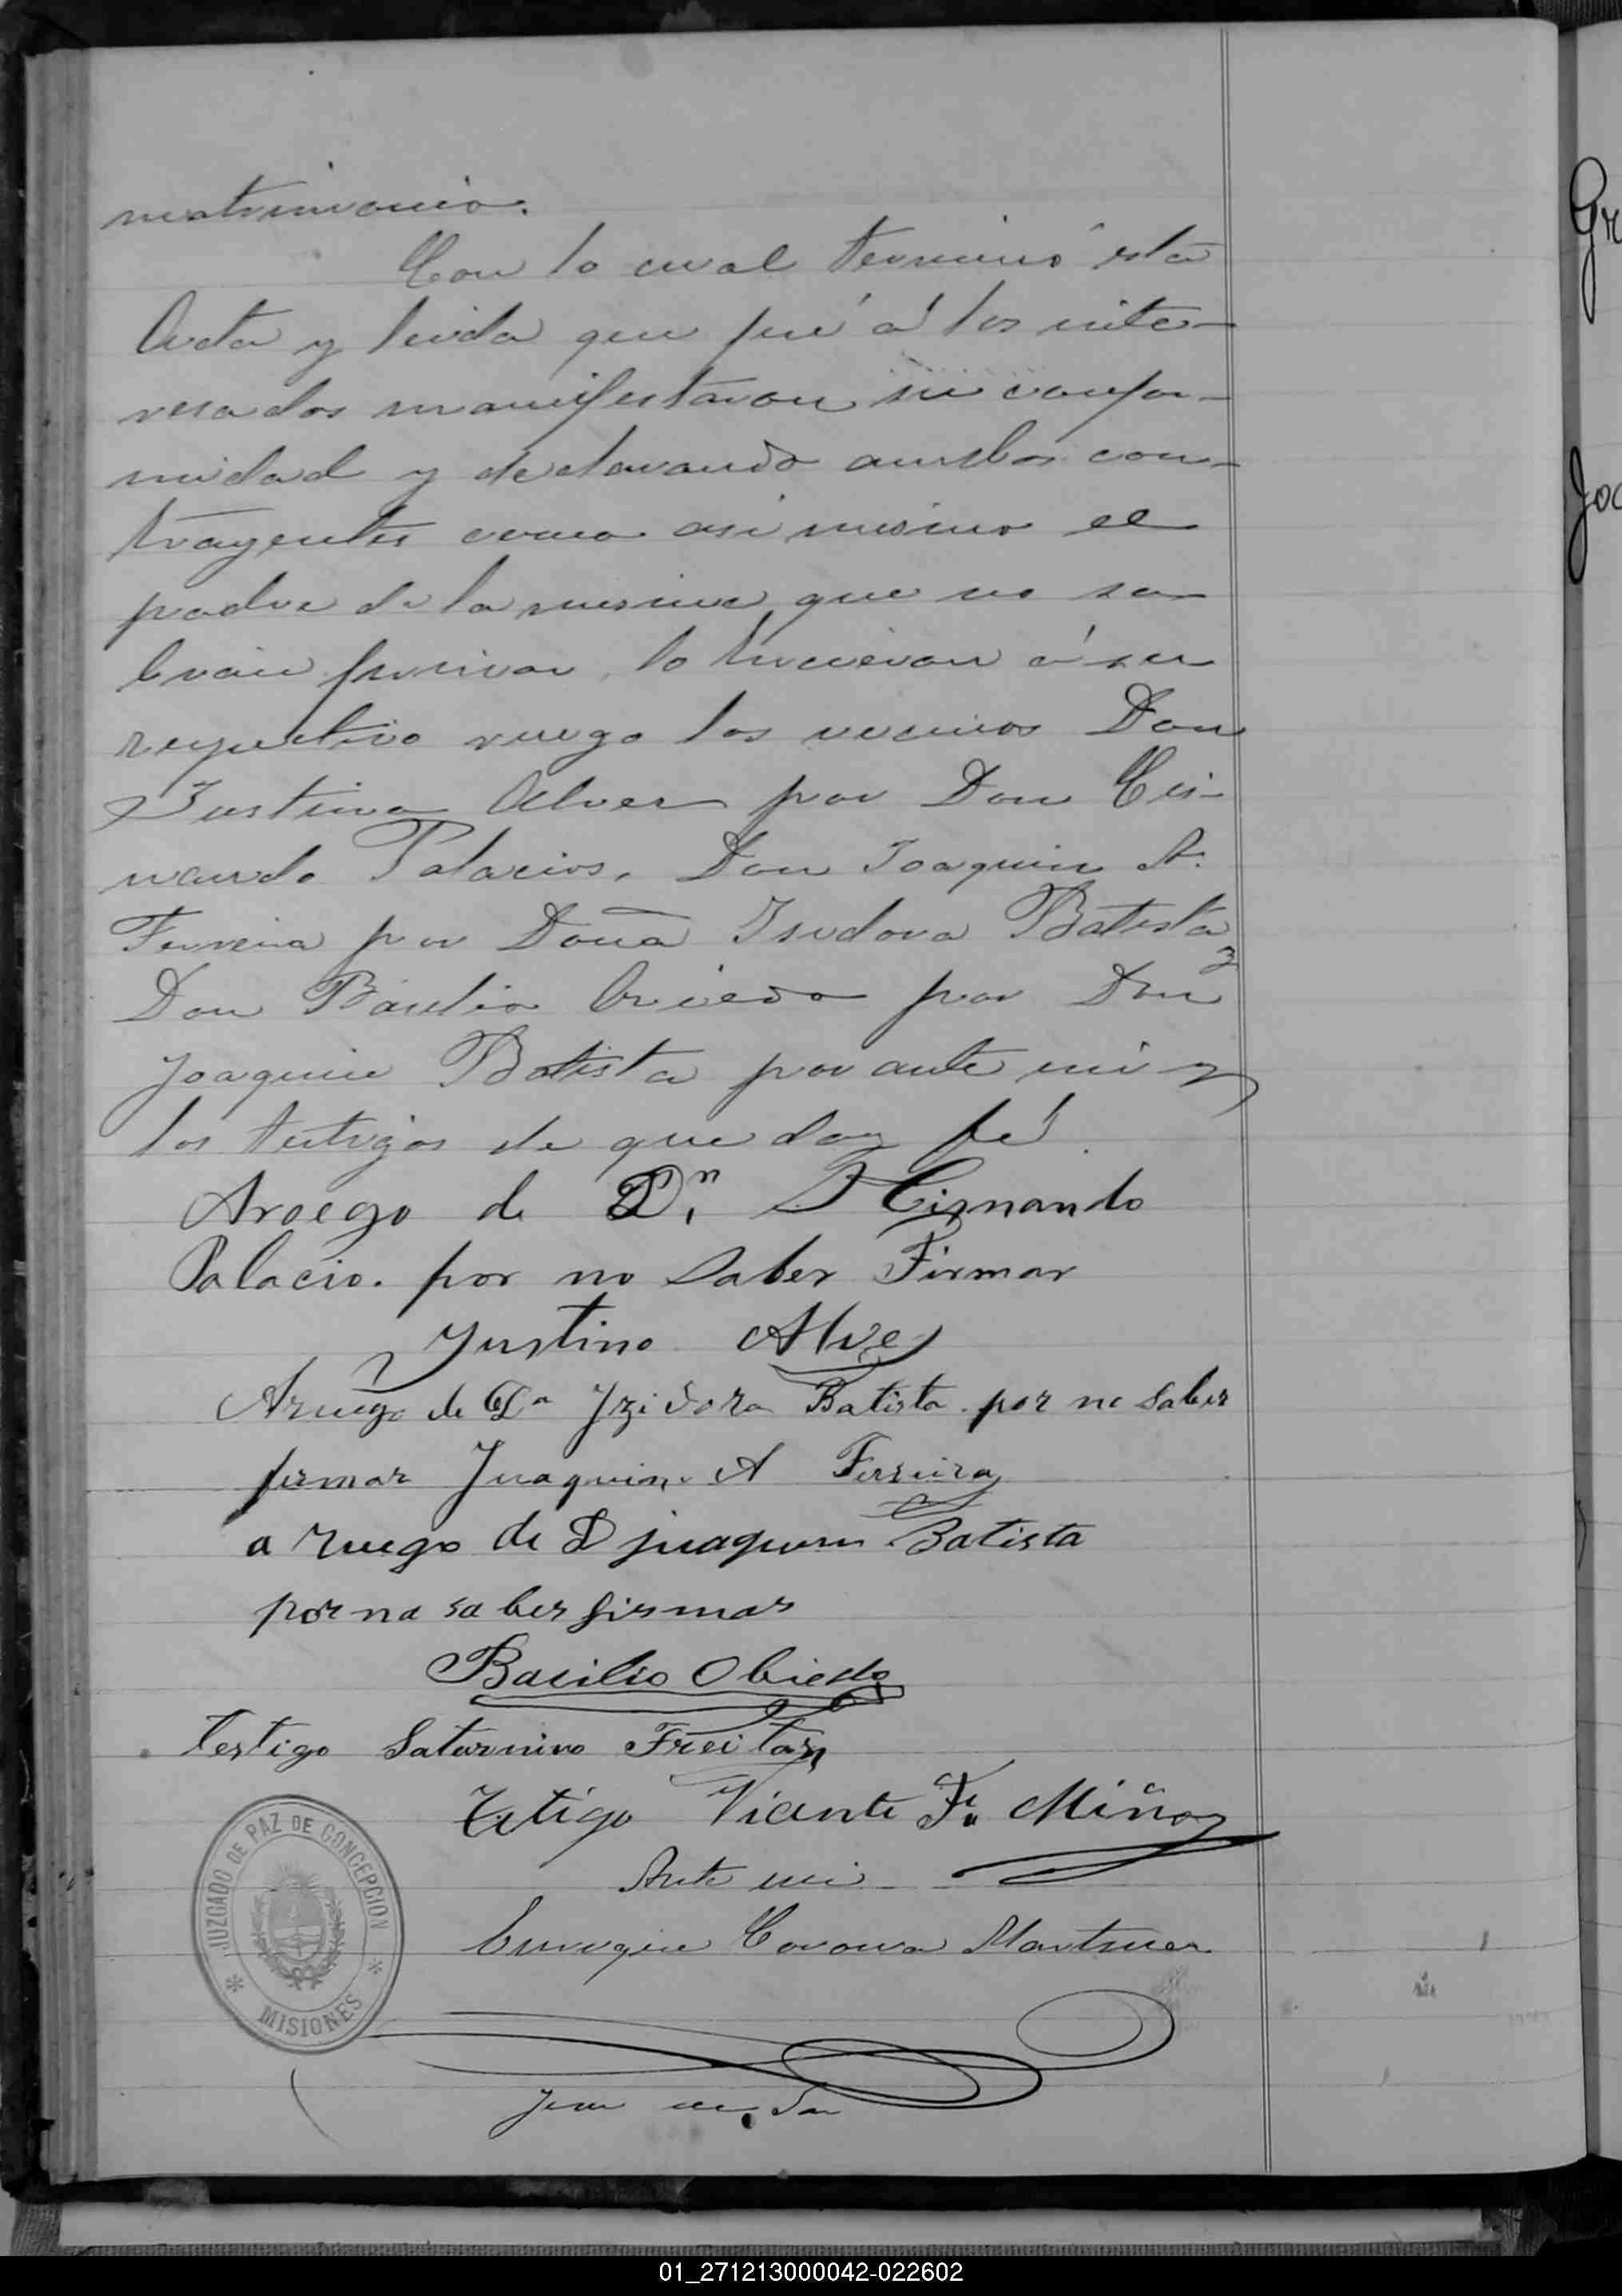 matrimonio.
Con lo cual terminó esta
Acta y leida que fué á los inte-
resados manifestaron su confor-
midad y declarando ambos con-
trayentes como asi mismo el
padre de la misma que no sa-
bian firmar, lo hicieron á su
respectivo ruego los vecinos Don
Justino Alves por Don Cis-
nando Palacios, Don Joaquin A.
Ferreira por Doña Isidora Batista y
Don Basilio Oviedo por Don
Joaquin Batista por ante mi y
los testigos de que doy fé.
Aroego de Dn. Cisnando
Palacio. por no Saber Firmar
Justino Alves
Aruego de Da Izidora Batista por no Saber
firmar Juaquin A Ferreira
a ruego de D juaquin Batista
por na saber firmar
Basilio Obiedo
testigo Saturnino Freitas
Testigo Vicente F. Miño
Ante mi
Corona Martinez
JUZGADO DE PAZ DE CONCEPCION
* MISIONES *
Gr
Joa
01_271213000042-022602